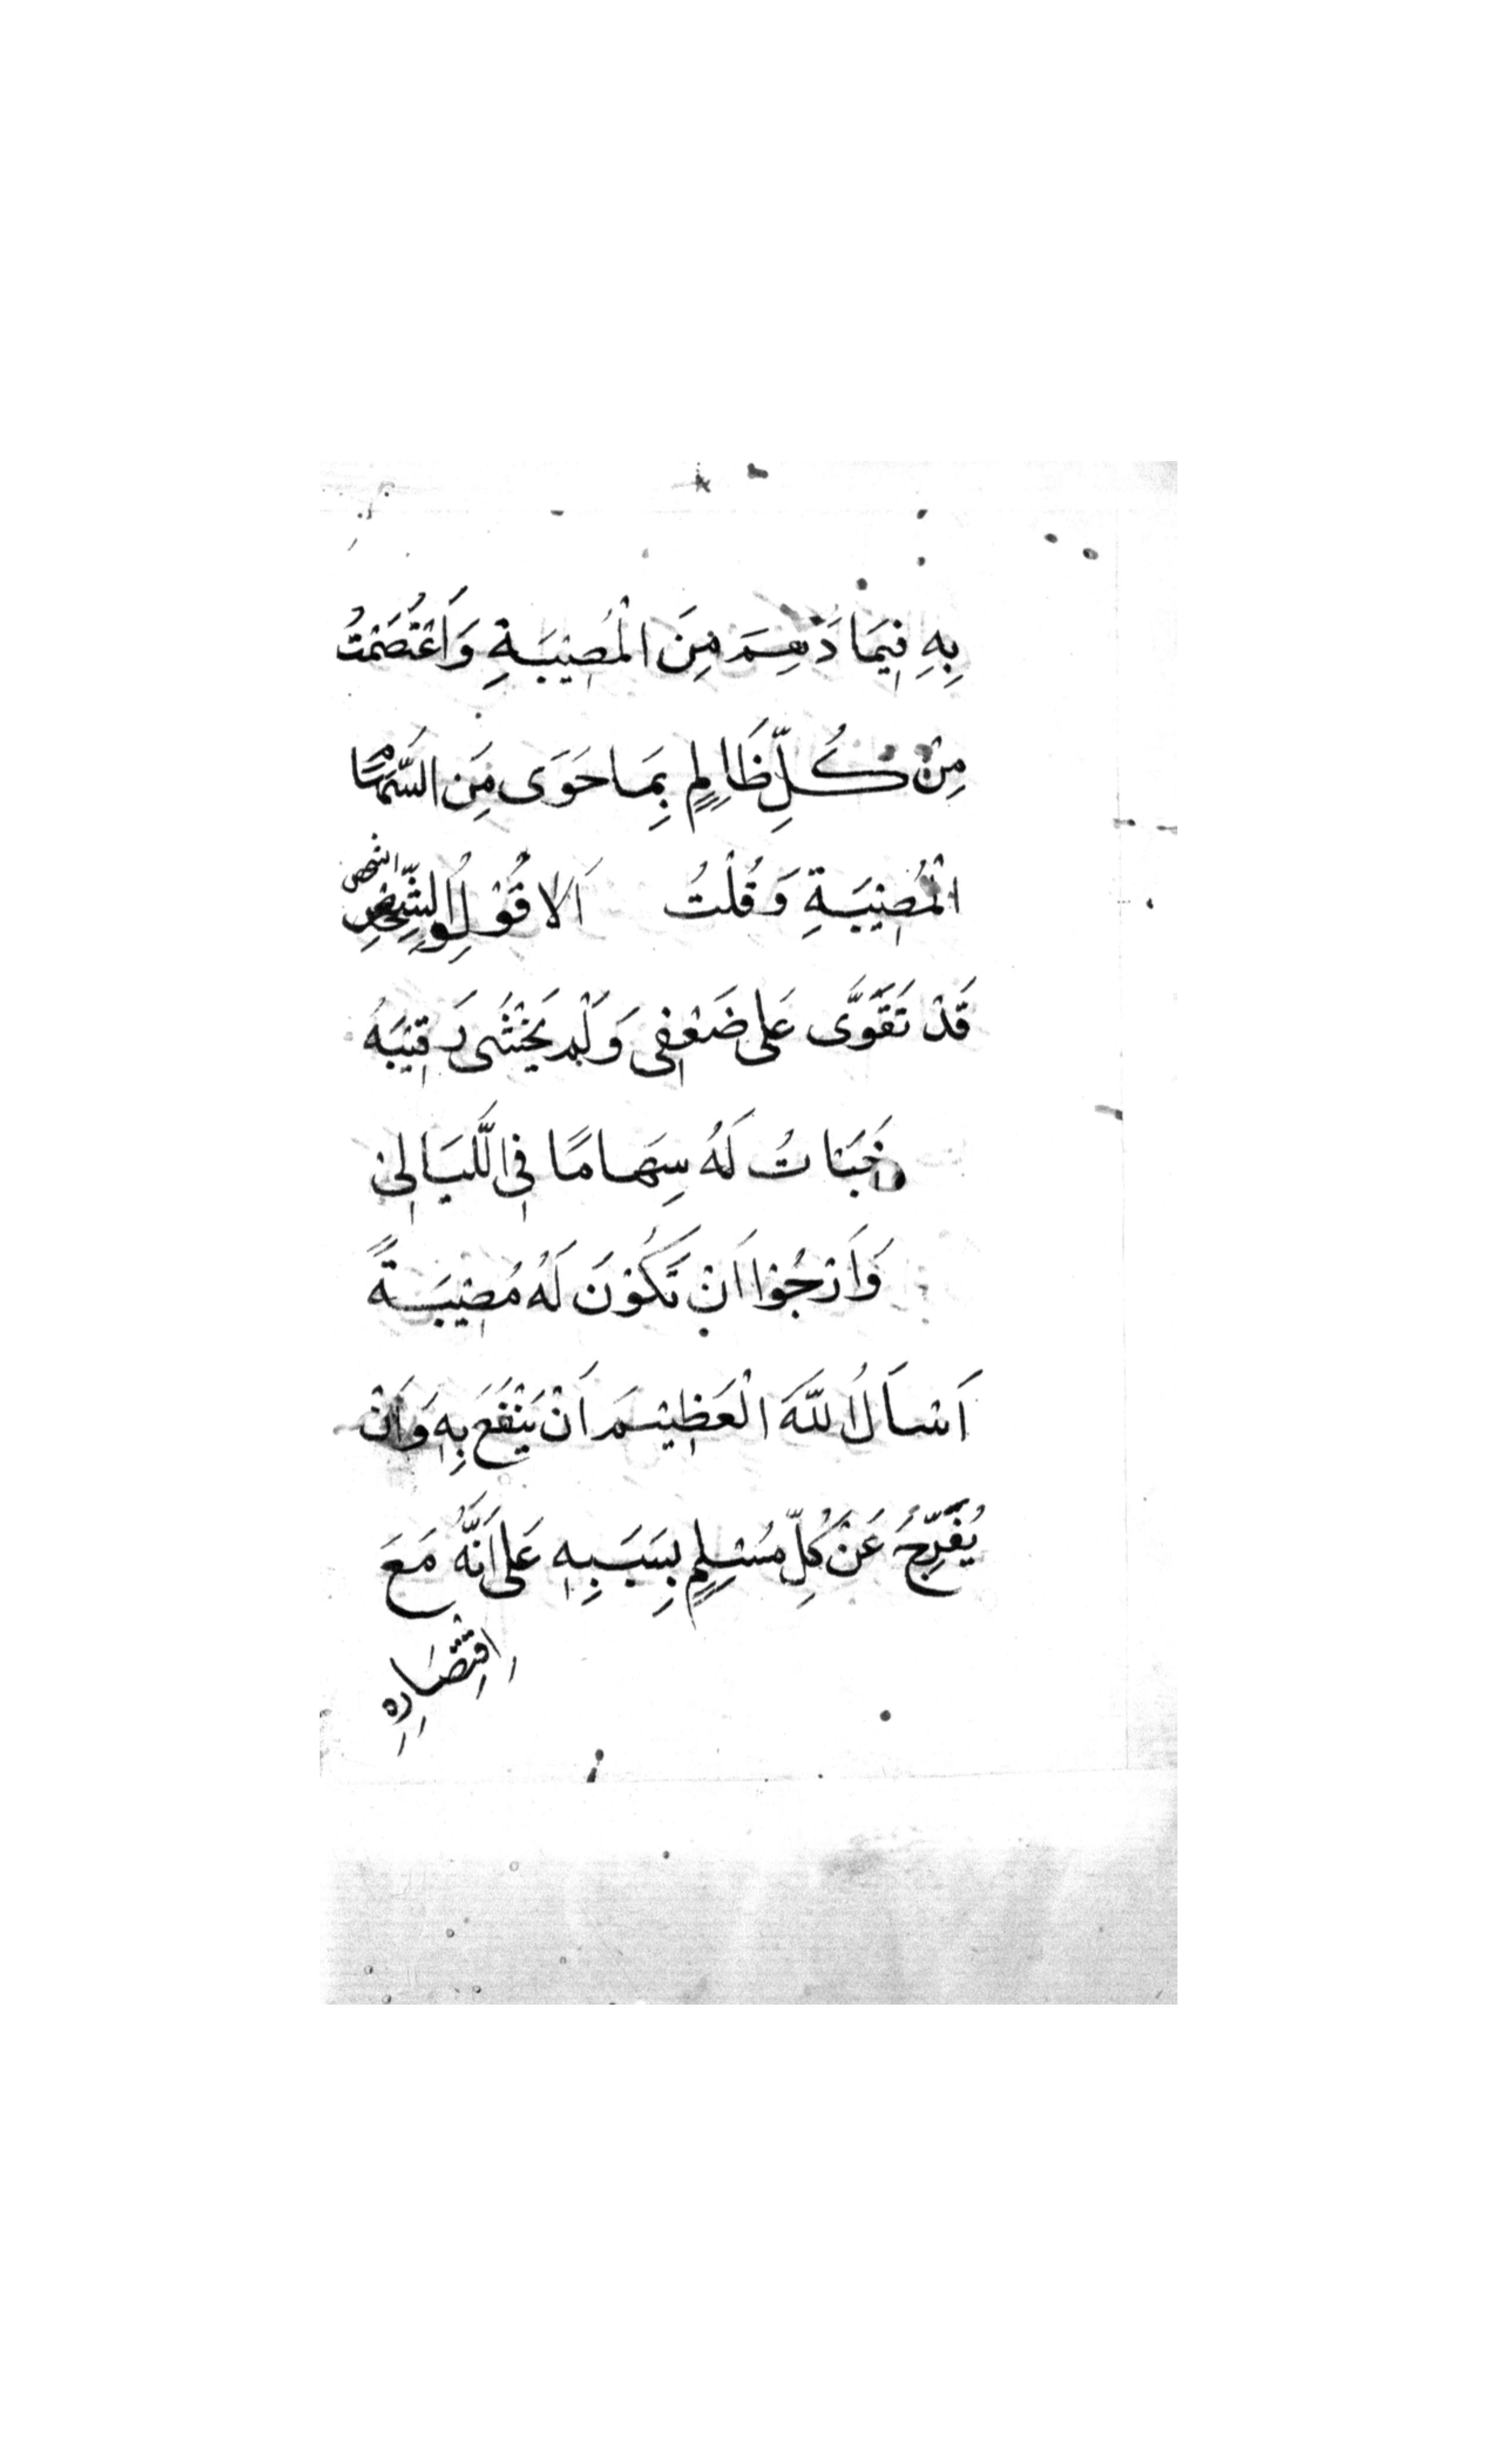 بِهِ فِيمَا دَهِمَ مِنَ الْمُصِيْبَةِ وَاَعْتَصَمْتُ
مِنْ كُلِّ ظَالِمٍ بِمَا حَوَى مِنَ السِّهَامِ
الْمُصِيْبَةِ وَقُلْتُ اَلَا قُوْلُوا لِشَخْصٍ
قَدْ تَقَوَّى عَلَى ضَعْفِى وَلَمْ يَخْشَى رَقِيْبَهُ
خَبَاتُ لَهُ سِهَامًا فِى اللَّيَالِىْ
وَاَرْجُوْا اَنْ تَكُوْنَ لَهُ مُصِيْبَةً
اَسْاَلُ اللَّهَ الْعَظِيْمَ اَنْ يَنْفَعَ بِهِ وَاَنْ
يُفَرِّجَ عَنْ كُلِّ مُسْلِمٍ بِسَبَبِهِ عَلَى اَنَّهُ مَعَ
اِقْتِصَارِهِ